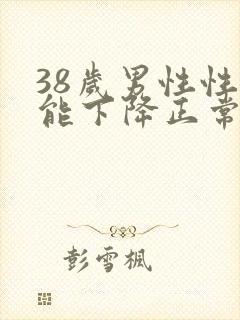 38歲男性性
能下降正常
彭雪楓